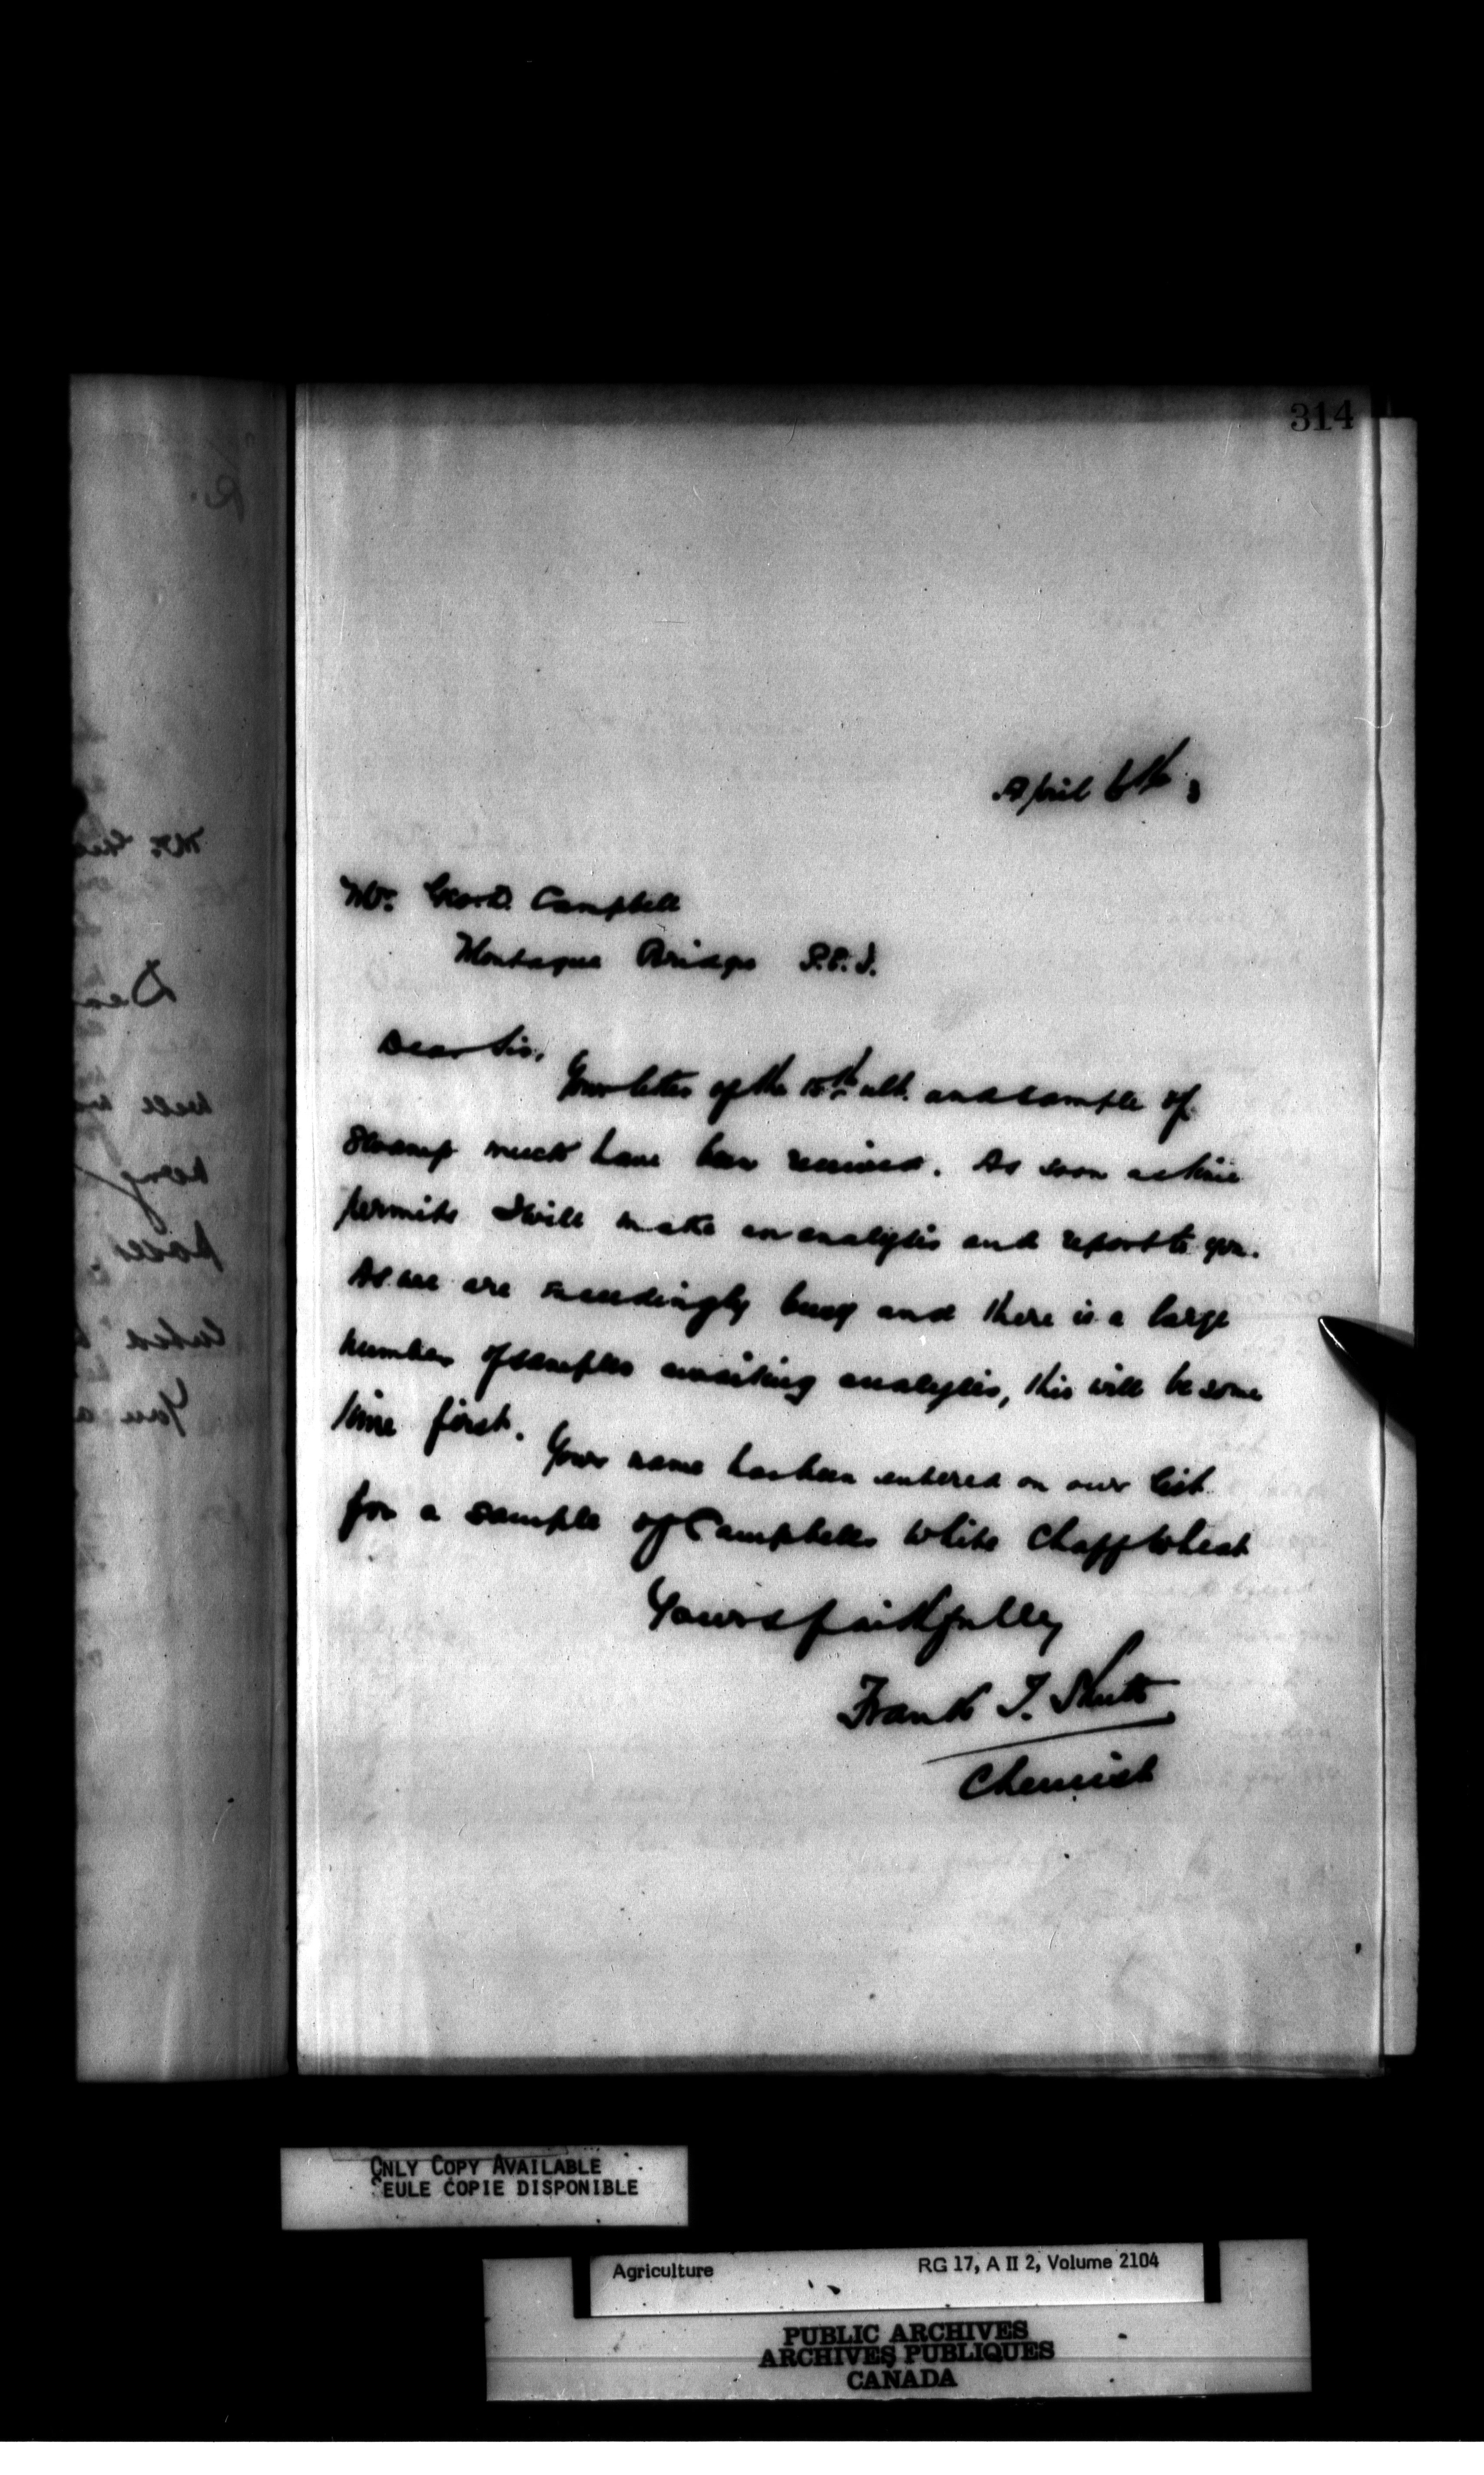 314
April 6th 3
Mr. Geo. D. Campbell
Montague Bridge P.E.I.
Dear Sir,
Your letter of the 15th ult. and sample of
Swamp muck have been received. As soon as time
permits I will make an analysis and report to you.
As we are exceedingly busy and there is a large
number of samples awaiting analysis, this will be some
time first.
Your name has been entered on our list
for a sample of Campbells White Chaff Wheat
Yours faithfully
Frank T. Shutt
Chemist
ONLY COPY AVAILABLE
SEULE COPIE DISPONIBLE
Agriculture RG 17, A II 2, Volume 2104
PUBLIC ARCHIVES
ARCHIVES PUBLIQUES
CANADA